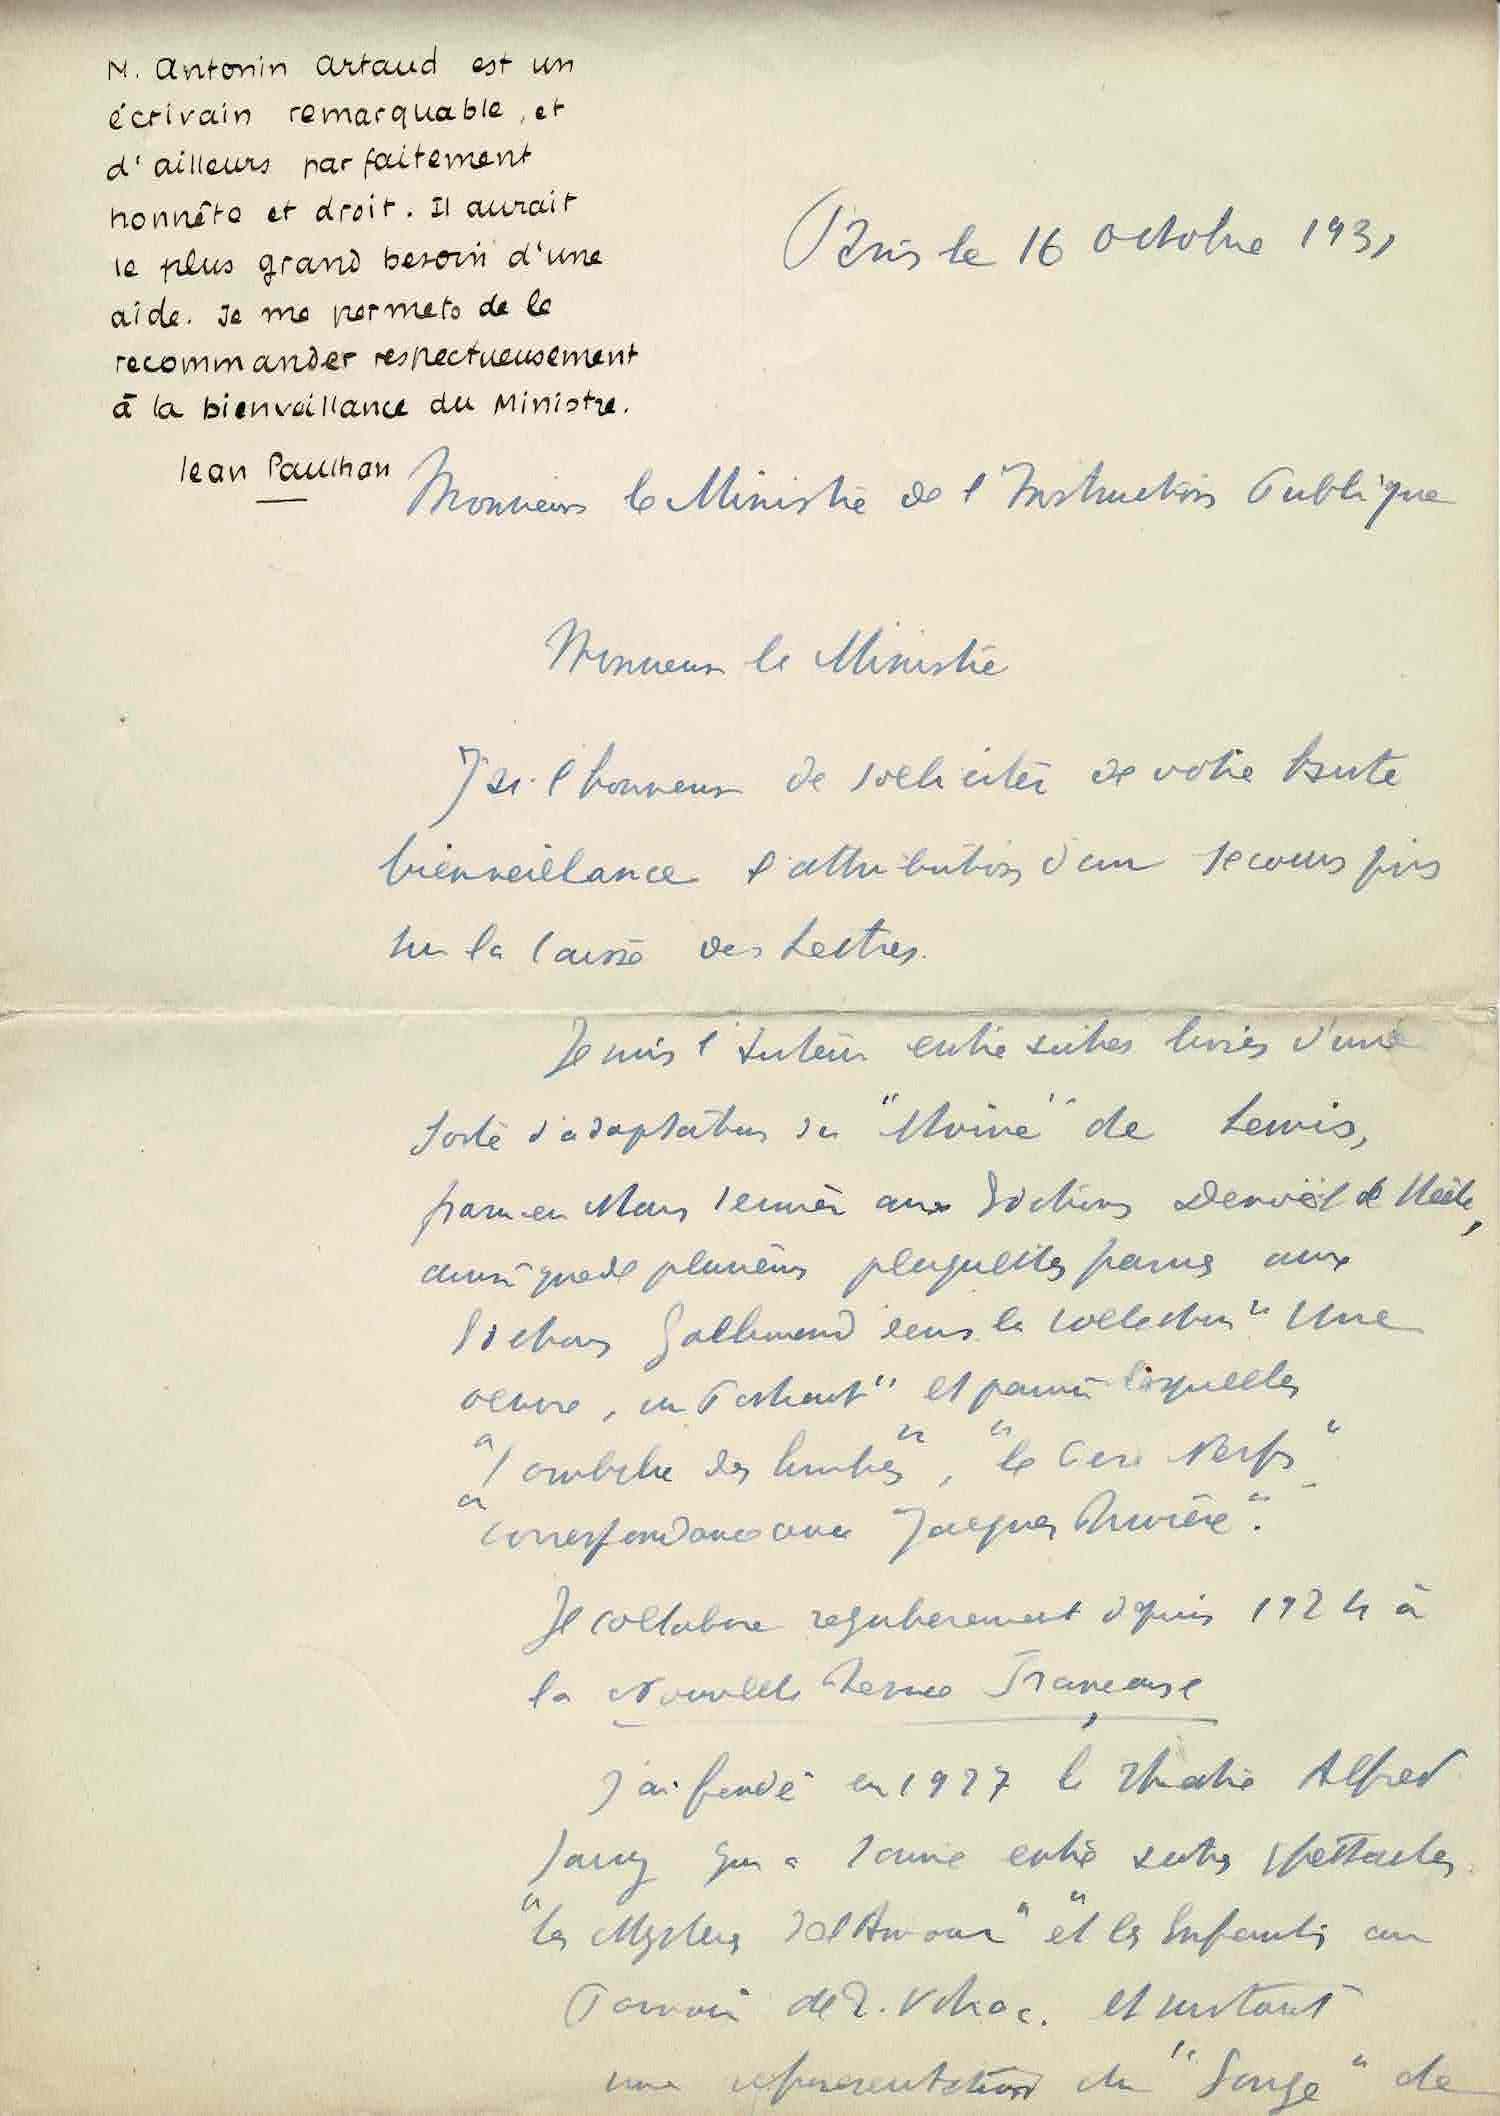 M. Antonin Artaud est un
écrivain remarquable, et
d'ailleurs parfaitement
honnête et droit. Il aurait
le plus grand besoin d'une
aide. Je me permets de le
recommander respectueusement
à la bienveillance du Ministre.
Jean Paulhan
Paris le 16 Octobre 1931
Monsieur le Ministre de l'Instruction Publique
Monsieur le Ministre
J'ai l'honneur de solliciter de votre haute
bienveillance l'attribution d'un secours pris
sur la Caisse des Lettres.
Je suis l'auteur entre autres livres d'une
sorte d'adaptation du "Moine" de Lewis,
paru en Mars dernier aux Editions Denoël & Steele,
ainsi que de plusieurs plaquettes parues aux
Editions Gallimard dans la collection "Une
oeuvre, un Portrait" et parmi lesquelles
"l'ombilic des limbes", "le Pèse Nerfs"
"correspondance avec Jacques Rivière".
Je collabore regulierement depuis 1924 à
la Nouvelle Revue Française
J'ai fondé en 1927 le Théatre Alfred
Jarry qui a donné entre autres spectacles
"les Mystères de l'Amour" et "les Enfants au
Pouvoir de R. Vitrac. et surtout
une représentation du "Songe" de